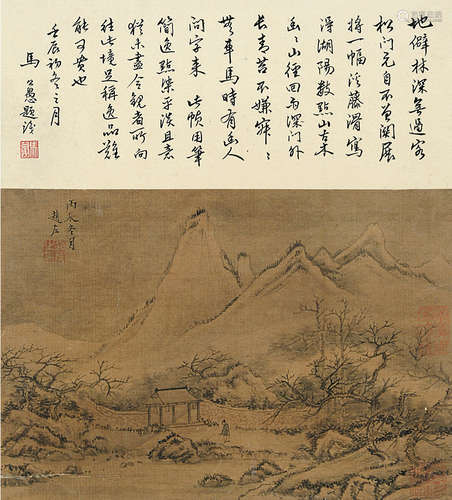 地僻林深無過客
松門元自不曾關展
將一幅溪藤滑寫
得湖陽數點山古木
幽〻山徑回雨深門外
長青苔不嫌寂〻
無車馬時有幽人
問字來 此幀用筆
簡逸點染平淡且意
猶未盡令觀者所向
往此境足稱逸品難
能可貴也
壬辰初冬之月
馬公愚題
丙辰冬月
趙左